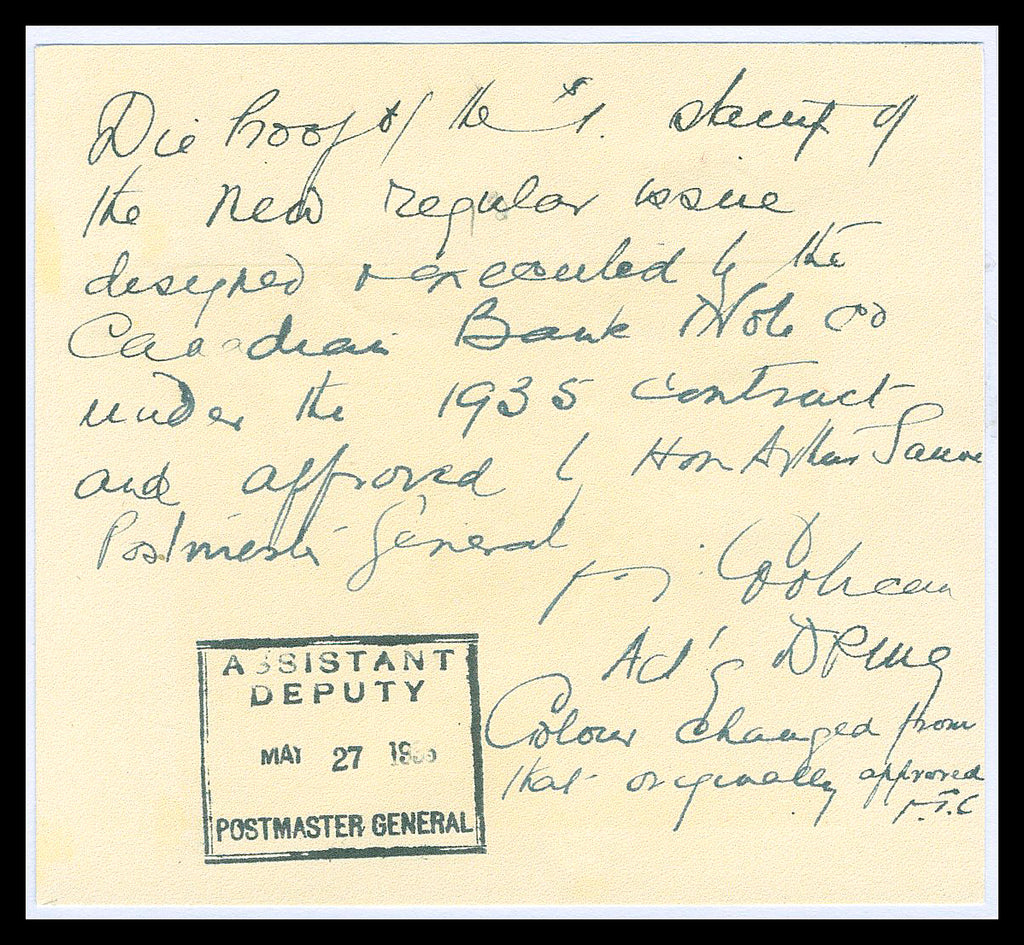 Die Proof of the $1. stamp of
the new regular issue
designed & executed by the
Canadian Bank Note Co
under the 1935 contract
and approved by Hon Arthur Sauve
Postmaster General
Coolican
Act'g DPMG
Colour changed from
that originally approved
ASSISTANT
DEPUTY
MAY 27 1935
POSTMASTER GENERAL